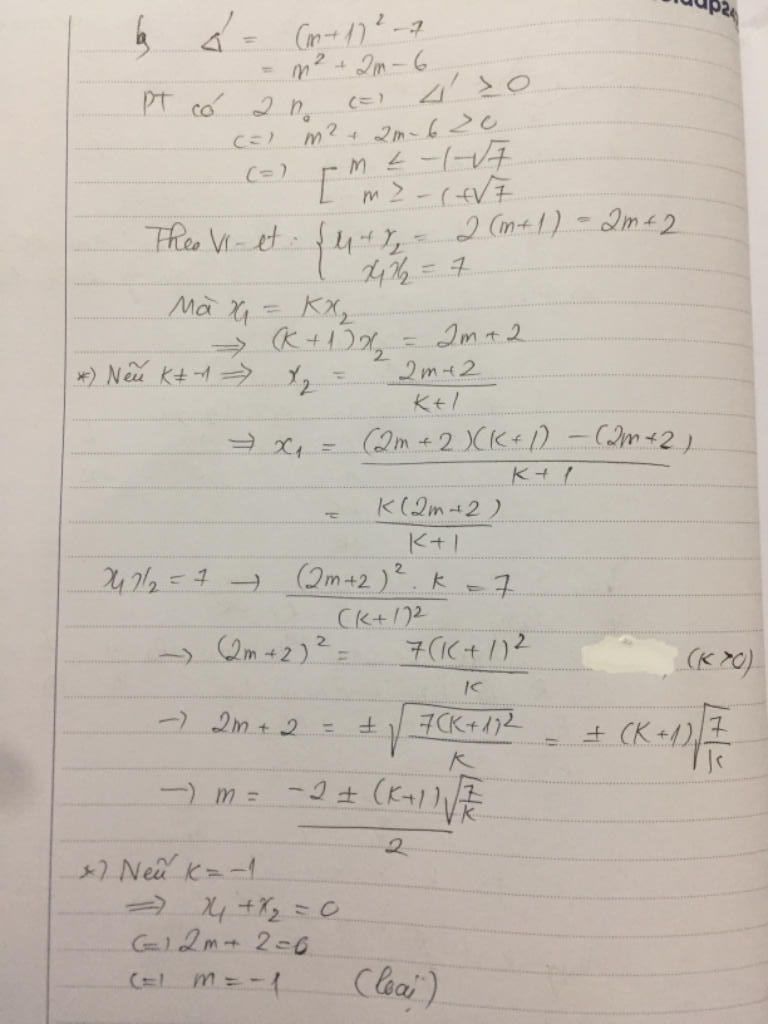 b, Δ' = (m+1)² - 7
= m² + 2m - 6
PT có 2 n₀ <=> Δ' ≥ 0
<=> m² + 2m - 6 ≥ 0
<=> [ m ≤ -1-√7
m ≥ -1+√7
Theo Vi-et: { x₁ + x₂ = 2(m+1) = 2m+2
x₁x₂ = 7
Mà x₁ = Kx₂
=> (K+1)x₂ = 2m+2
*) Nếu K ≠ -1 => x₂ = (2m+2)/(K+1)
=> x₁ = ((2m+2)(K+1) - (2m+2))/(K+1)
= K(2m+2)/(K+1)
x₁x₂ = 7 → ((2m+2)² . K)/(K+1)² = 7
→ (2m+2)² = 7(K+1)²/K (K>0)
→ 2m+2 = ±√(7(K+1)²/K) = ±(K+1)√(7/K)
→ m = (-2 ± (K+1)√(7/K))/2
*) Nếu K = -1
=> x₁ + x₂ = 0
<=> 2m + 2 = 0
<=> m = -1 (loại)